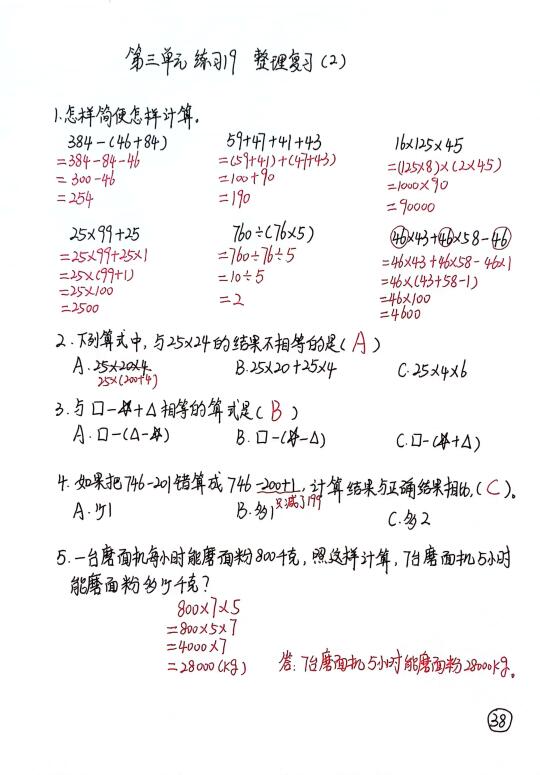 第三单元 练习19 整理复习(2)
1.怎样简便怎样计算。
384-(46+84)
=384-84-46
=300-46
=254
59+47+41+43
=(59+41)+(47+43)
=100+90
=190
16×125×45
=(125×8)×(2×45)
=1000×90
=90000
25×99+25
=25×99+25×1
=25×(99+1)
=25×100
=2500
760÷(76×5)
=760÷76÷5
=10÷5
=2
46×43+46×58-46
=46×43+46×58-46×1
=46×(43+58-1)
=46×100
=4600
2.下列算式中,与25×24的结果不相等的是(A)
A.25×20×4 B.25×20+25×4 C.25×4×6
25×(200+4)
3.与□-☆+△相等的算式是(B)
A.□-(△-☆) B.□-(☆-△) C.□-(☆+△)
4.如果把746-201错算成746-200+1,计算结果与正确结果相比,(C)。
只减了199
A.少1 B.多1 C.多2
5.一台磨面机每小时能磨面粉800千克,照这样计算,7台磨面机5小时
能磨面粉多少千克?
800×7×5
=800×5×7
=4000×7
=28000(kg)
答:7台磨面机5小时能磨面粉28000kg。
38